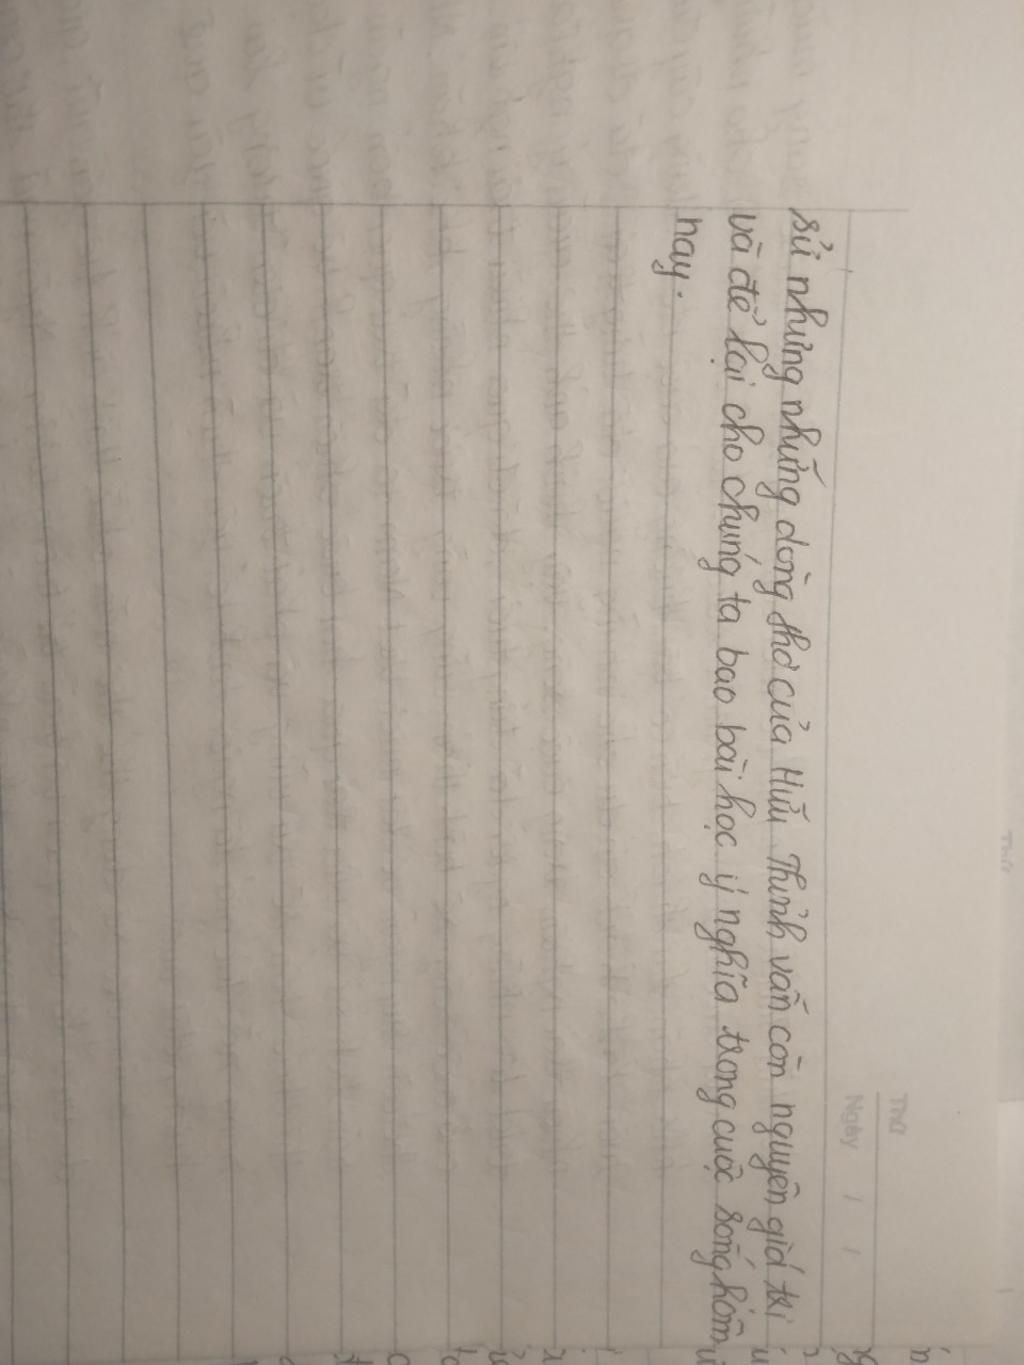 Thứ
Ngày / /
sử nhưng những dòng thơ của Hữu Thỉnh vẫn còn nguyên giá trị
và để lại cho chúng ta bao bài học ý nghĩa trong cuộc sống hôm
nay.